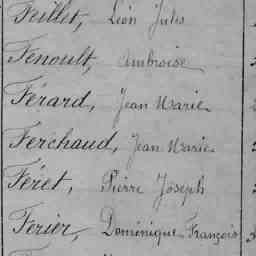 Feillet, Léon Jules
Fenoult, Ambroise
Férard, Jean Marie
Ferchaud, Jean Marie
Féret, Pierre Joseph
Ferier, Dominique François